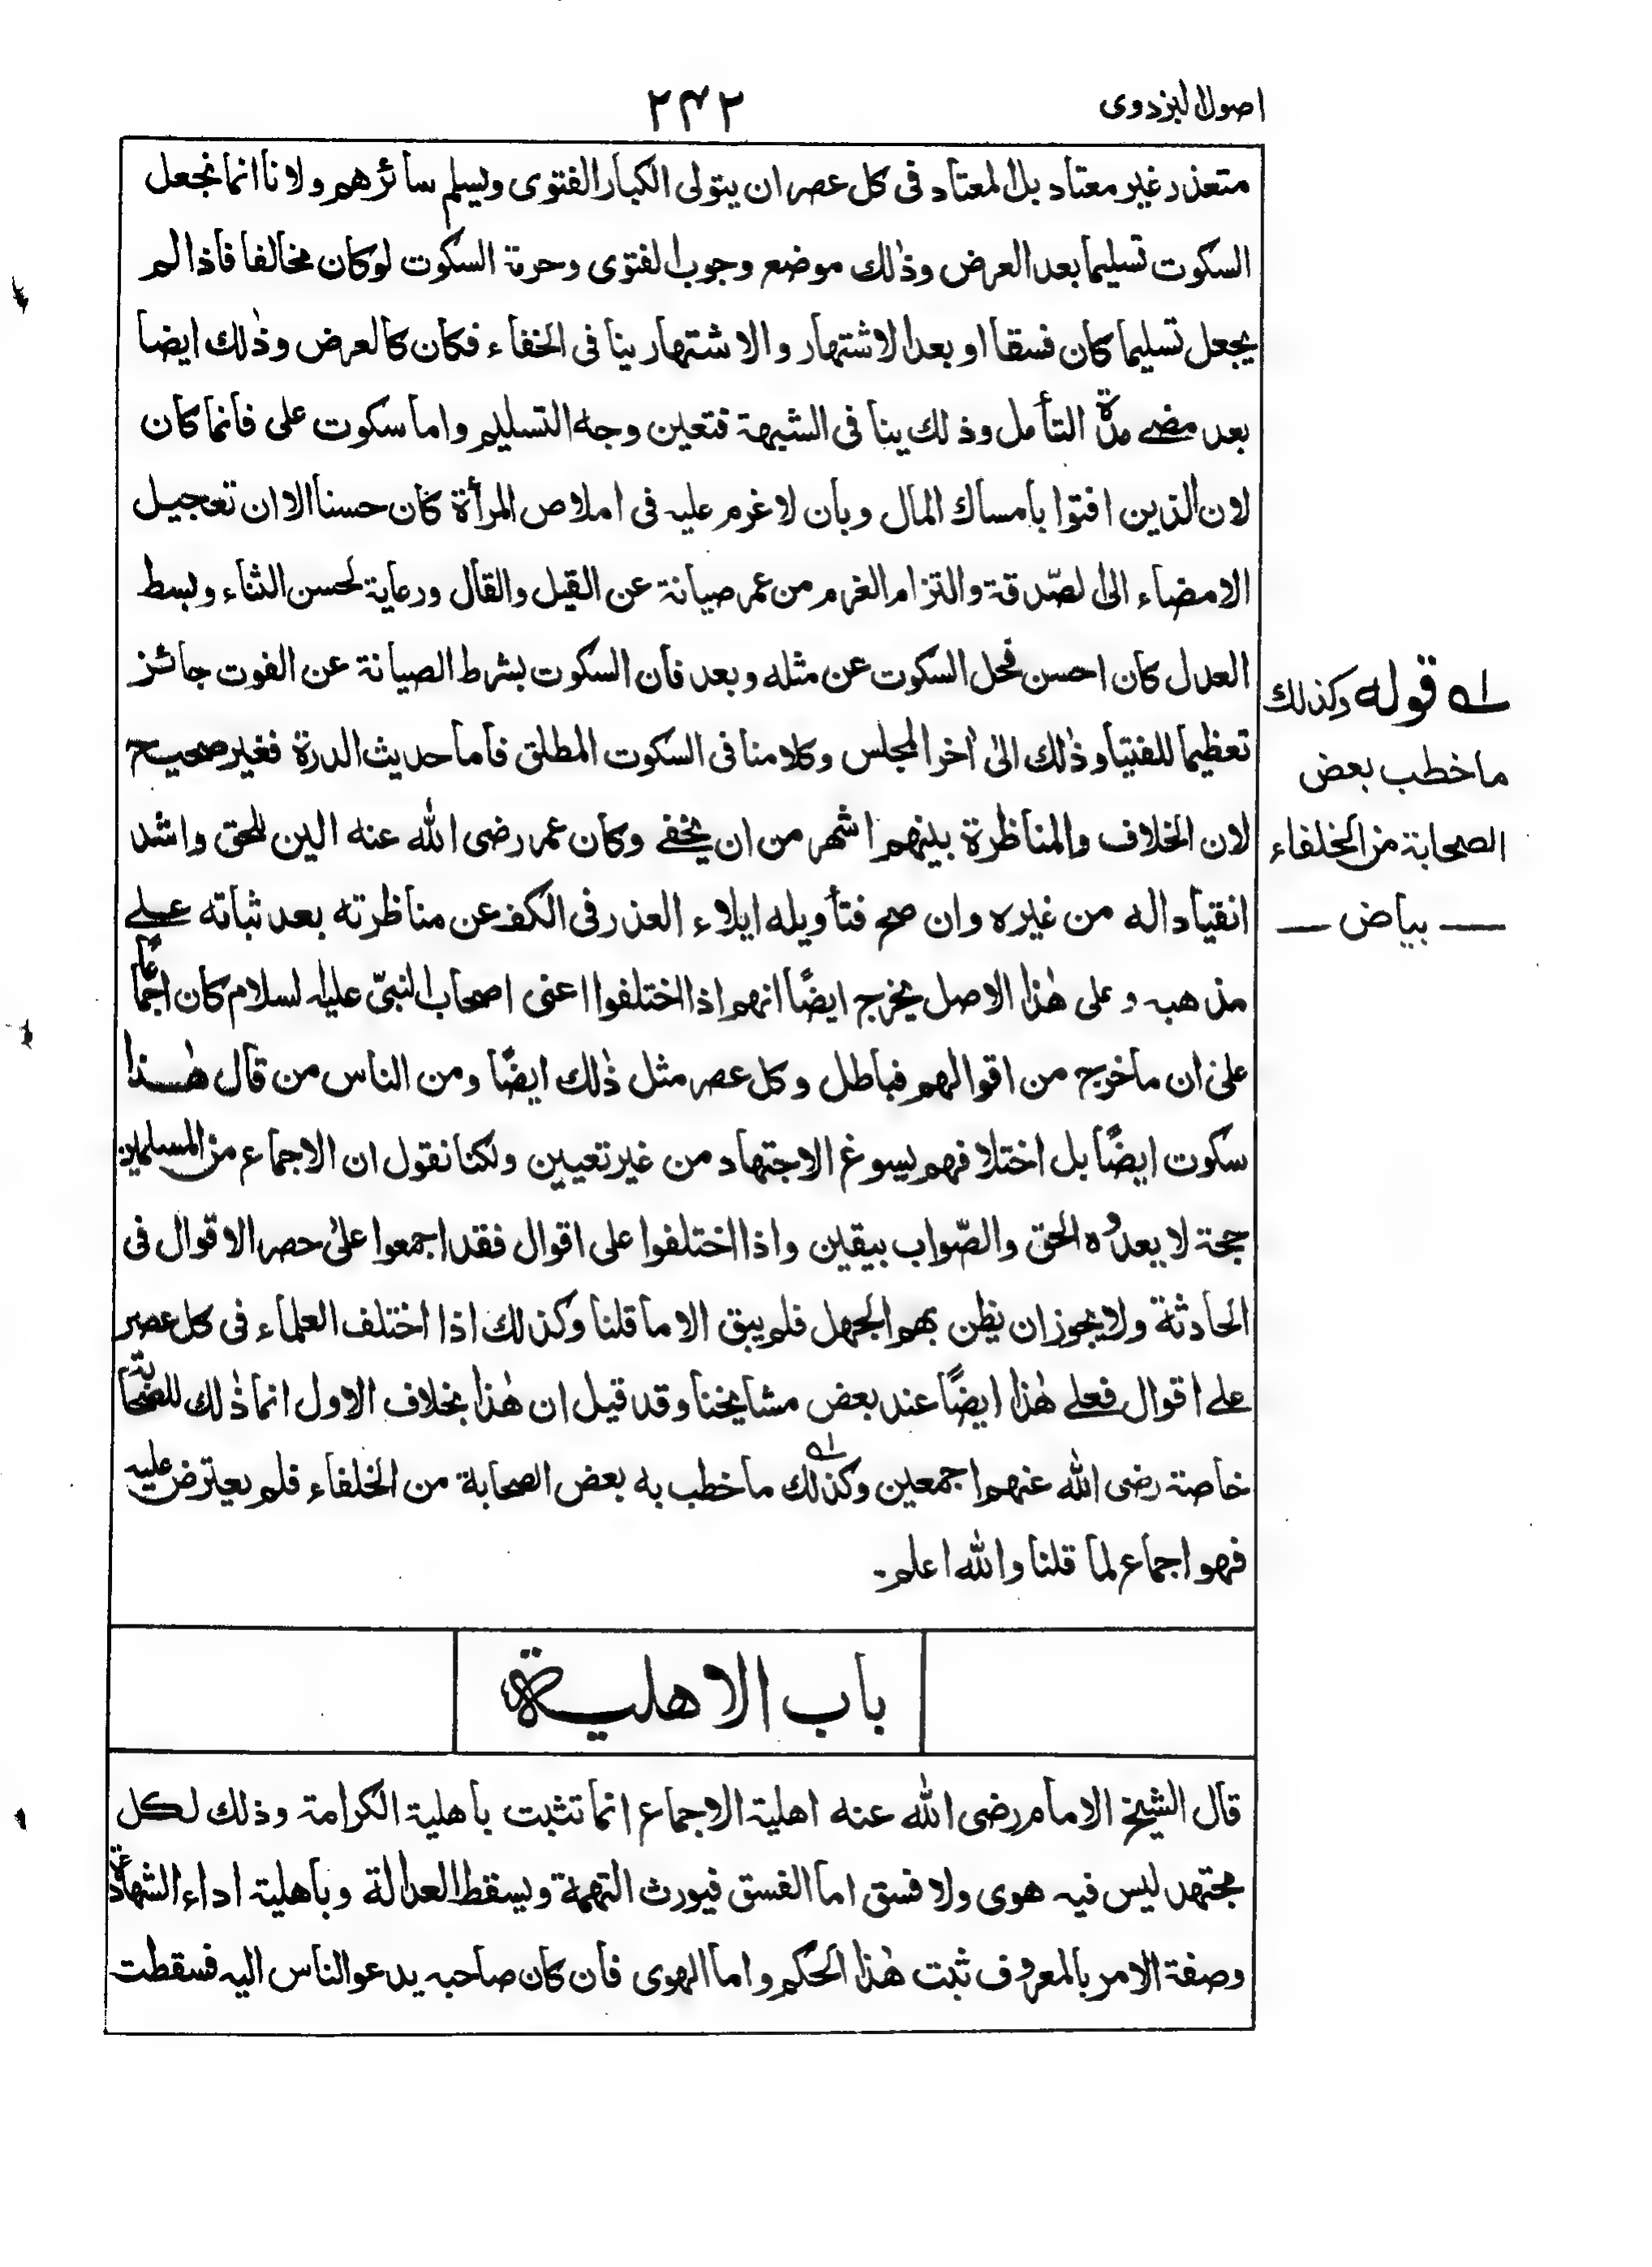 اصول البزدوی
۲۴۲
متعذر غير معتاد بل المعتاد فى كل عصر ان يتولى الكبار الفتوى ويسلم سائرهم ولانا انما نجعل
السكوت تسليما بعد العرض وذٰلك موضع وجوب الفتوى وحرمة السكوت لو كان مخالفا فاذا لم
يجعل تسليما كان فسقا او بعد الاشتهار والاشتهار ينا فى الخفاء فكان كالعرض وذٰلك ايضا
بعد مضے مدة التأمل وذلك ينا فى الشبهة فتعين وجه التسليم واما سكوت على فانما كان
لان الذين افتوا بامساك المال وبان لا غرم عليه فى املاص المرأة كان حسنا الا ان تعجيل
الامضاء الى الصّدقة والتزام الغرم من عمر صيانة عن القيل والقال ورعاية لحسن الثناء وبسط
العدل كان احسن فحل السكوت عن مثله وبعد فان السكوت بشرط الصيانة عن الفوت جائز
تعظيما للفتيا وذٰلك الىٰ اٰخر المجلس وكلامنا فى السكوت المطلق فاما حديث الدرة فغير صحيح
لان الخلاف والمناظرة بينهم اشهر من ان يخفے وكان عمر رضى الله عنه الين للحق واشد
انقيادا له من غيره وان صح فتأويله ايلاء العذر فى الكف عن مناظرته بعد ثباته علے
مذهبه وعلى هٰذا الاصل يخرج ايضًا انهم اذا اختلفوا اعنى اصحاب النبىّ عليه السلام كان اجماعًا
علىٰ ان ما خرج من اقوالهم فباطل وكل عصر مثل ذٰلك ايضًا ومن الناس من قال هٰذا
سكوت ايضًا بل اختلافهم يسوغ الاجتهاد من غير تعيين ولكنا نقول ان الاجماع من المسلمين
حجة لا يعدوه الحق والصّواب بيقين واذا اختلفوا على اقوال فقد اجمعوا علىٰ حصر الاقوال فى
الحادثة ولا يجوز ان يظن بهم الجهل فلم يبق الا ما قلنا وكذلك اذا اختلف العلماء فى كل عصر
علے اقوال فعلے هٰذا ايضًا عند بعض مشايخنا وقد قيل ان هٰذا بخلاف الاول انما ذٰلك للصحابة
خاصة رضى الله عنهم اجمعين وكذلك ؎۱ ما خطب به بعض الصحابة من الخلفاء فلم يعترض عليه
فهو اجماع لما قلنا والله اعلم۔
باب الاهلية
قال الشيخ الامام رضى الله عنه اهلية الاجماع انما تثبت باهلية الكرامة وذلك لكل
مجتهد ليس فيه هوى ولا فسق اما الفسق فيورث التهمة ويسقط العدالة وباهلية اداء الشهادة
وصفة الامر بالمعروف ثبت هٰذا الحكم واما الهوى فان كان صاحبه يدعو الناس اليه فسقطت
؎۱ قوله وكذلك
ما خطب بعض
الصحابة من الخلفاء
— بياض —